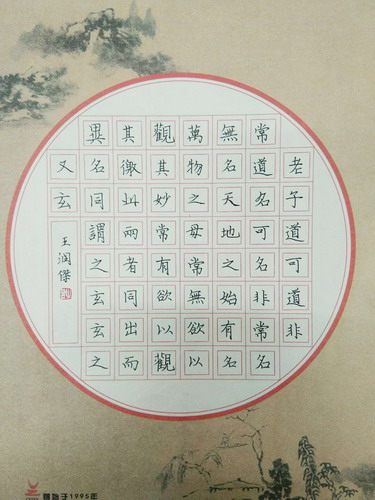 老子道可道非
常道名可名非常名
無名天地之始有名
萬物之母常無欲以
觀其妙常有欲以觀
其徼此兩者同出而
異名同謂之玄玄之
又玄
王润傑
始于1995年